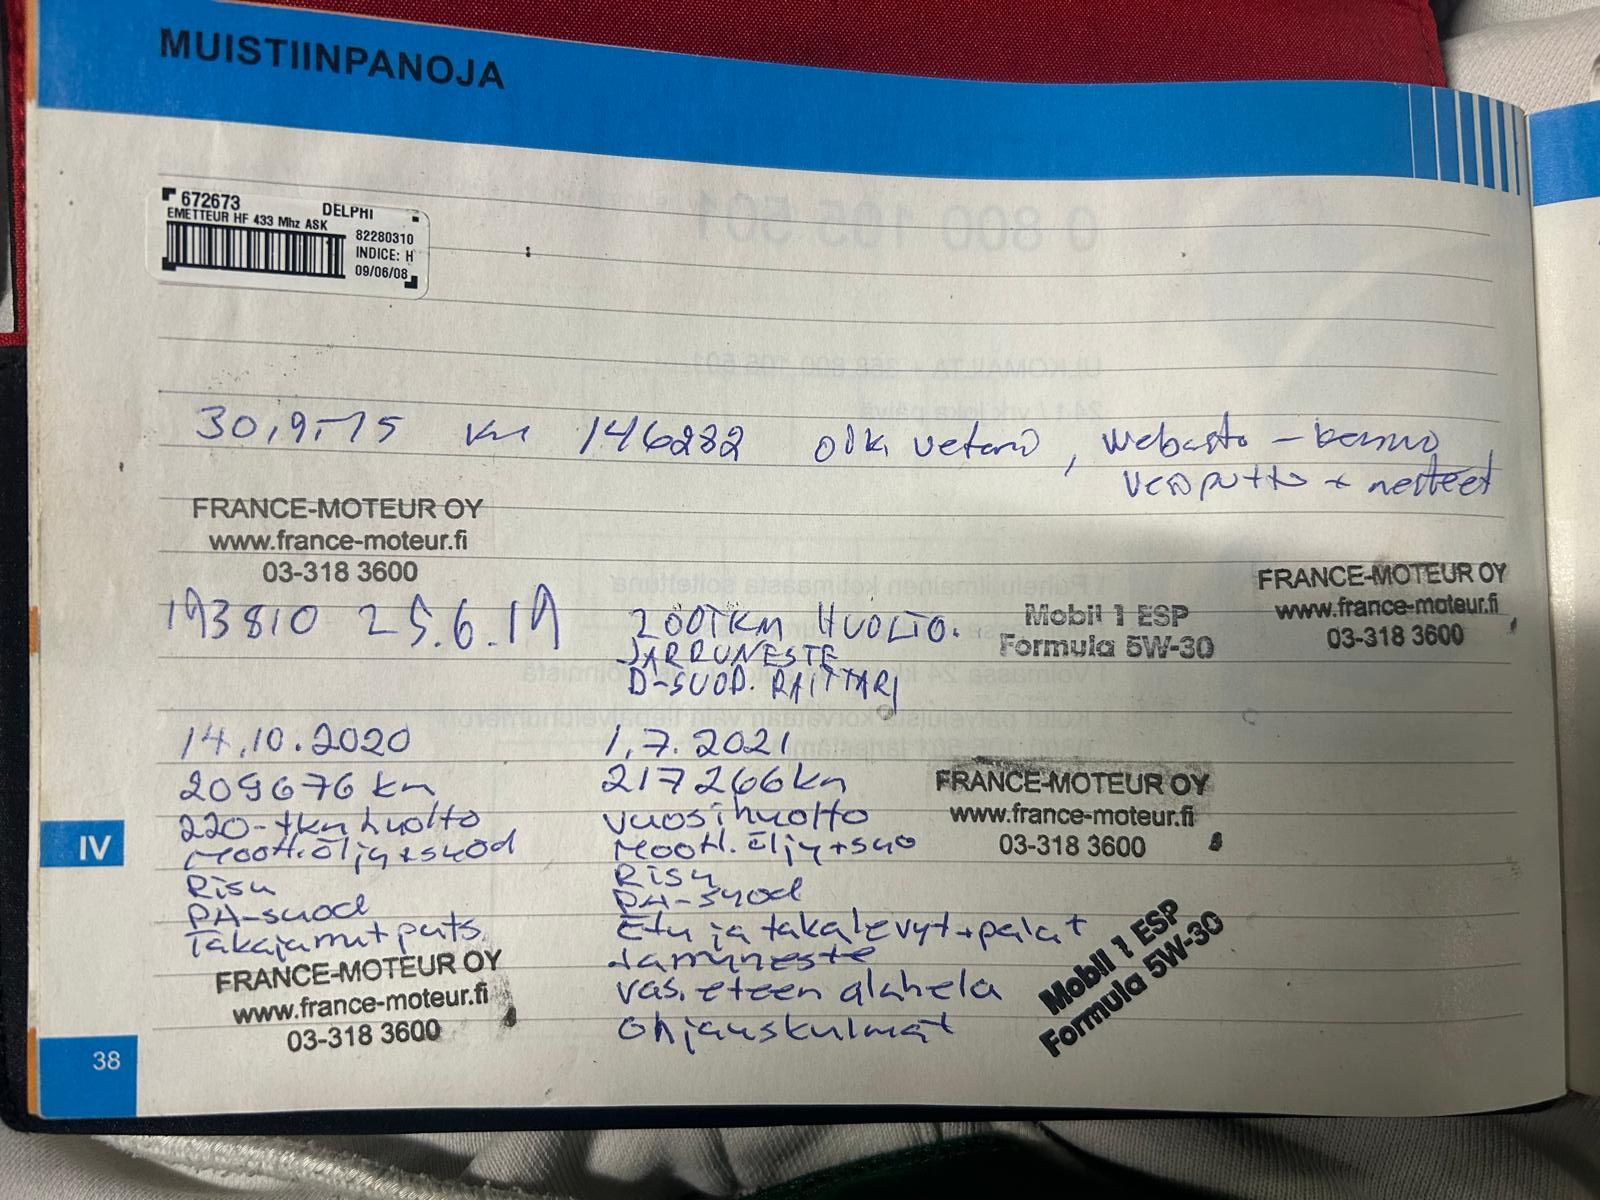 MUISTIINPANOJA
672673 DELPHI
EMETTEUR HF 433 Mhz ASK
82280310
INDICE: H
09/06/08
30,9,-15 km 146282 olki vetari, webasto -
vesiputto + nesteet
FRANCE-MOTEUR OY
www.france-moteur.fi
03-318 3600
193810 25.6.19
200TKM HUOLTO.
JARRUNESTE
D-SUOD. RAITTARJ
Mobil 1 ESP
Formula 5W-30
FRANCE-MOTEUR OY
www.france-moteur.fi
03-318 3600
14.10.2020
209676 km
220-tkm huolto
Moott.öljy+suod
Risu
PA-suod
Takajarrut puts
FRANCE-MOTEUR OY
www.france-moteur.fi
03-318 3600
1.7.2021
217266 km
vuosihuolto
Moott. öljy+suo
Risu
PA-suod
Etu ja takalevyt+palat
Jarruneste
vas. eteen alahela
Ohjauskulmat
FRANCE-MOTEUR OY
www.france-moteur.fi
03-318 3600
Mobil 1 ESP
Formula 5W-30
IV
38